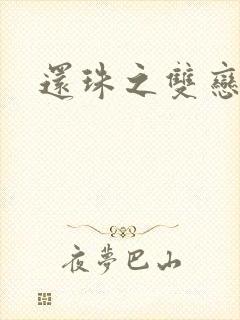 還珠之雙戀
夜夢巴山